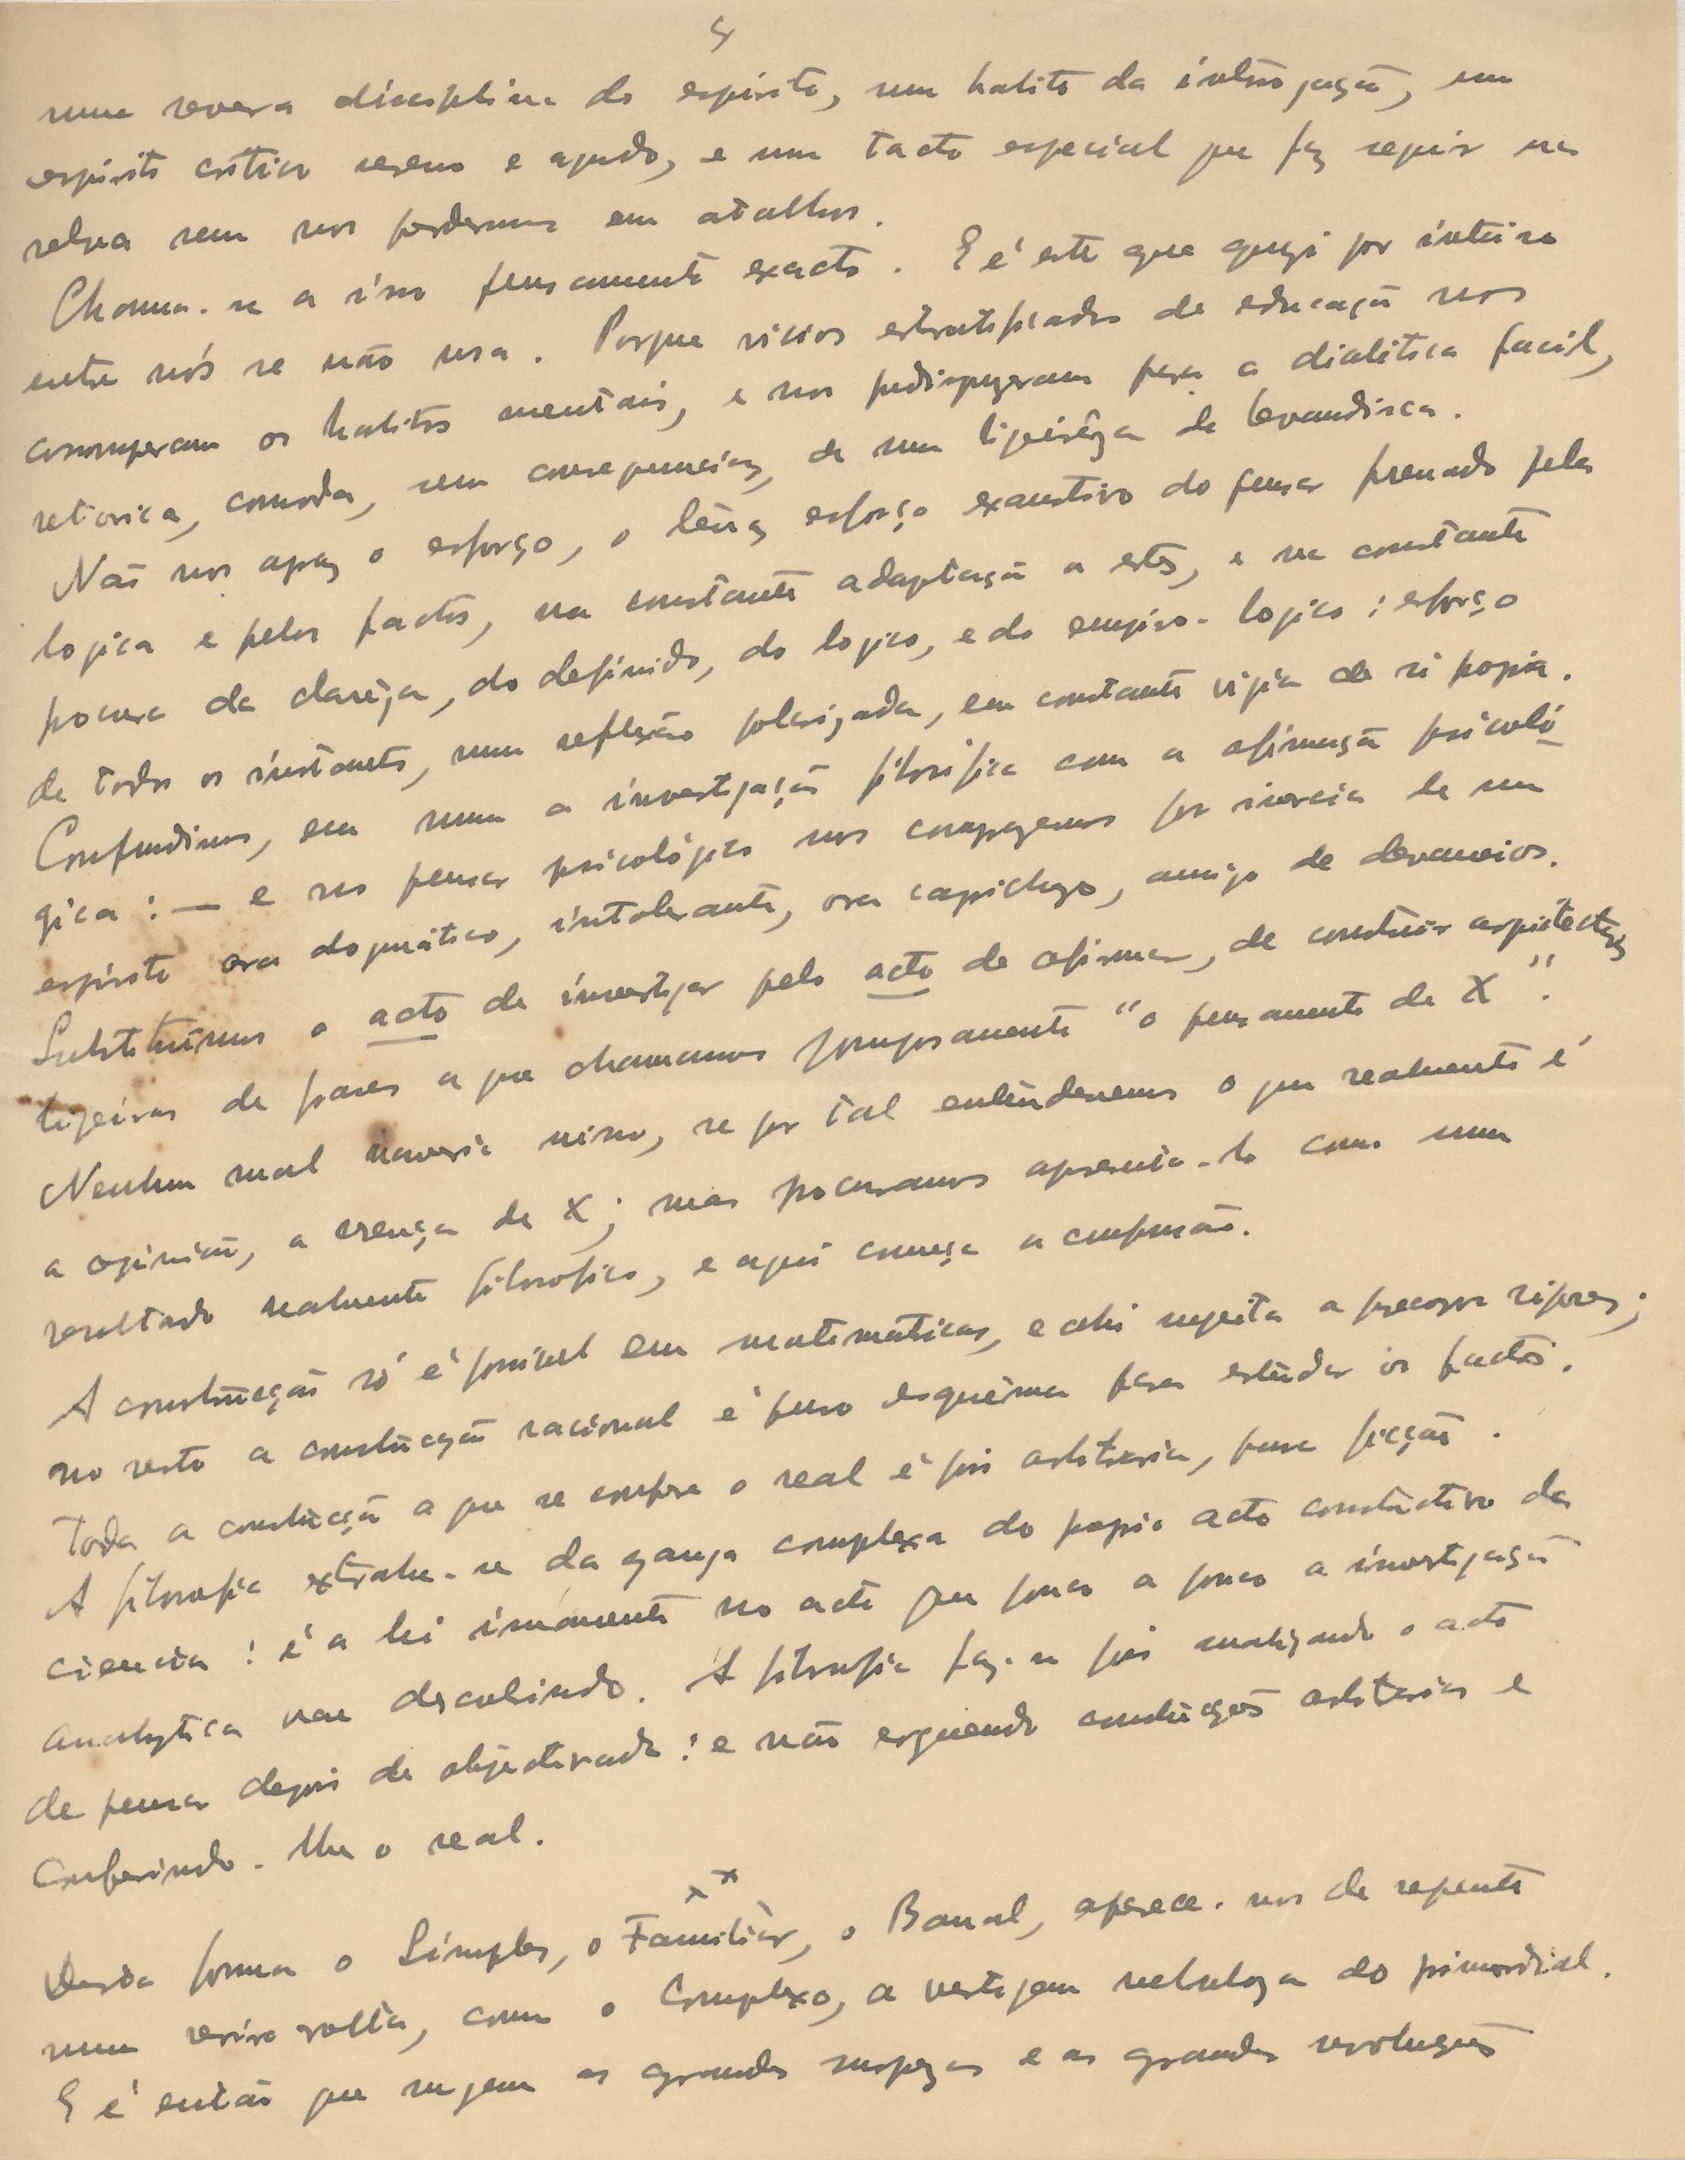 5
uma severa disciplina do espirito, um habito da introspeção, um
espirito critico sereno e agudo, e um tacto especial que faz seguir na
selva sem nos perdermos em atalhos.
Chama-se a isso pensamento exacto. E é este que quazi por inteiro
entre nós se não usa. Porque vicios estratificados de educação nos
corromperam os habitos mentais, e nos predispuzeram para a dialética facil,
retorica, comoda, sem consequencias, de uma ligeirêza de lavandisca.
Não nos apraz o esforço, o tenaz esforço exaustivo do pensar premado pela
logica e pelos factos, na constante adaptação a estes, e na constante
procura da clarêza, do definido, do logico, e do empiro-logico: esforço
de todos os instantes, numa reflexão polarizada, em constante vigia de si propia.
Confundimos, em suma a investigação filosofica com a afirmação psicoló
gica: — e no pensar psicológico nos comprazemos por inercia de um
espirito ora dogmático, intolerante, ora caprichozo, amigo de devaneios.
Substituimos o acto de investigar pelo acto de afirmar, de construir arquitecturas
ligeiras de frases a que chamamos pomposamente "o pensamento de X".
Nenhum mal haveria nisso, se por tal entendermos o que realmente é
a opinião, a crença de X; mas procuramos apresenta-lo como um
resultado realmente filosofico, e aqui começa a confusão.
A construcção só é possivel em matematicas, e ahi sujeita a precozes rigores;
no resto a construcção racional é puro esquêma para estudar os factos.
Toda a construcção a que se confere o real é pois arbitraria, pura ficção.
A filosofia extrahe-se da ganga complexa do propio acto constructivo da
ciencia: é a lei imanente no acto que pouco a pouco a investigação
analytica vae descobrindo. A filosofia faz-se pois analizando o acto
de pensar depois de objectivado: e não erguendo construcções arbitrarias e
conferindo-lhe o real.
x x
Desta forma o Simples, o Familiar, o Banal, aparece-nos de repente
numa reviravolta, como o Complexo, a vertigem nebuloza do primordial.
E é então que surgem as grandes surprezas e as grandes revoluções